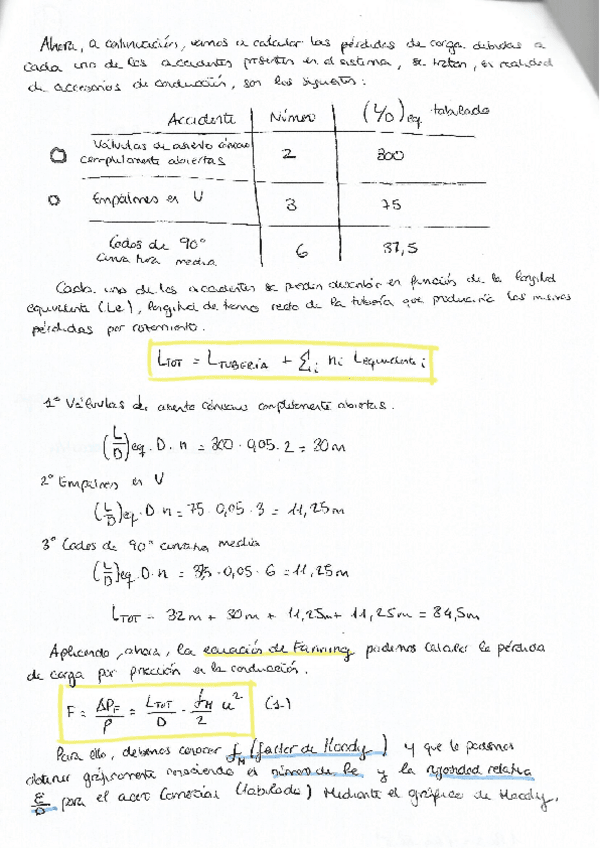 Ahora, a continuación, vamos a calcular las pérdidas de carga debidas a
cada uno de los accidentes presentes en el sistema, se tratan, en realidad
de accesorios de conducción, son los siguientes:
Accidente Número (L/D)eq tabulado
Válvulas de asiento cónico
completamente abiertas 2 300
Empalmes en U 3 75
Codos de 90°
curvatura media 6 37,5
Cada uno de los accidentes se pueden describir en función de la longitud
equivalente (Le), longitud de tramo recto de la tubería que produciría las mismas
pérdidas por rozamiento.
LTOT = LTUBERÍA + Σi ni Lequivalente i
1° Válvulas de asiento cónico completamente abiertas.
(L/D)eq. D. n = 300 · 0,05 · 2 = 30m
2° Empalmes en U
(L/D)eq. D n = 75 · 0,05 · 3 = 11,25m
3° Codos de 90° curvatura media
(L/D)eq. D. n = 37,5 · 0,05 · 6 = 11,25m
LTOT = 32m + 30m + 11,25m + 11,25m = 84,5m
Aplicando, ahora, la ecuación de Fanning podemos calcular la pérdida
de carga por fricción en la conducción.
F = ΔPF/ρ = LTOT/D · fM/2 u² (1)
Para ello, debemos conocer fM (factor de Moody) y que lo podemos
obtener gráficamente conociendo el número de Re y la rugosidad relativa
ε/D para el acero comercial (tabulado) mediante el gráfico de Moody.